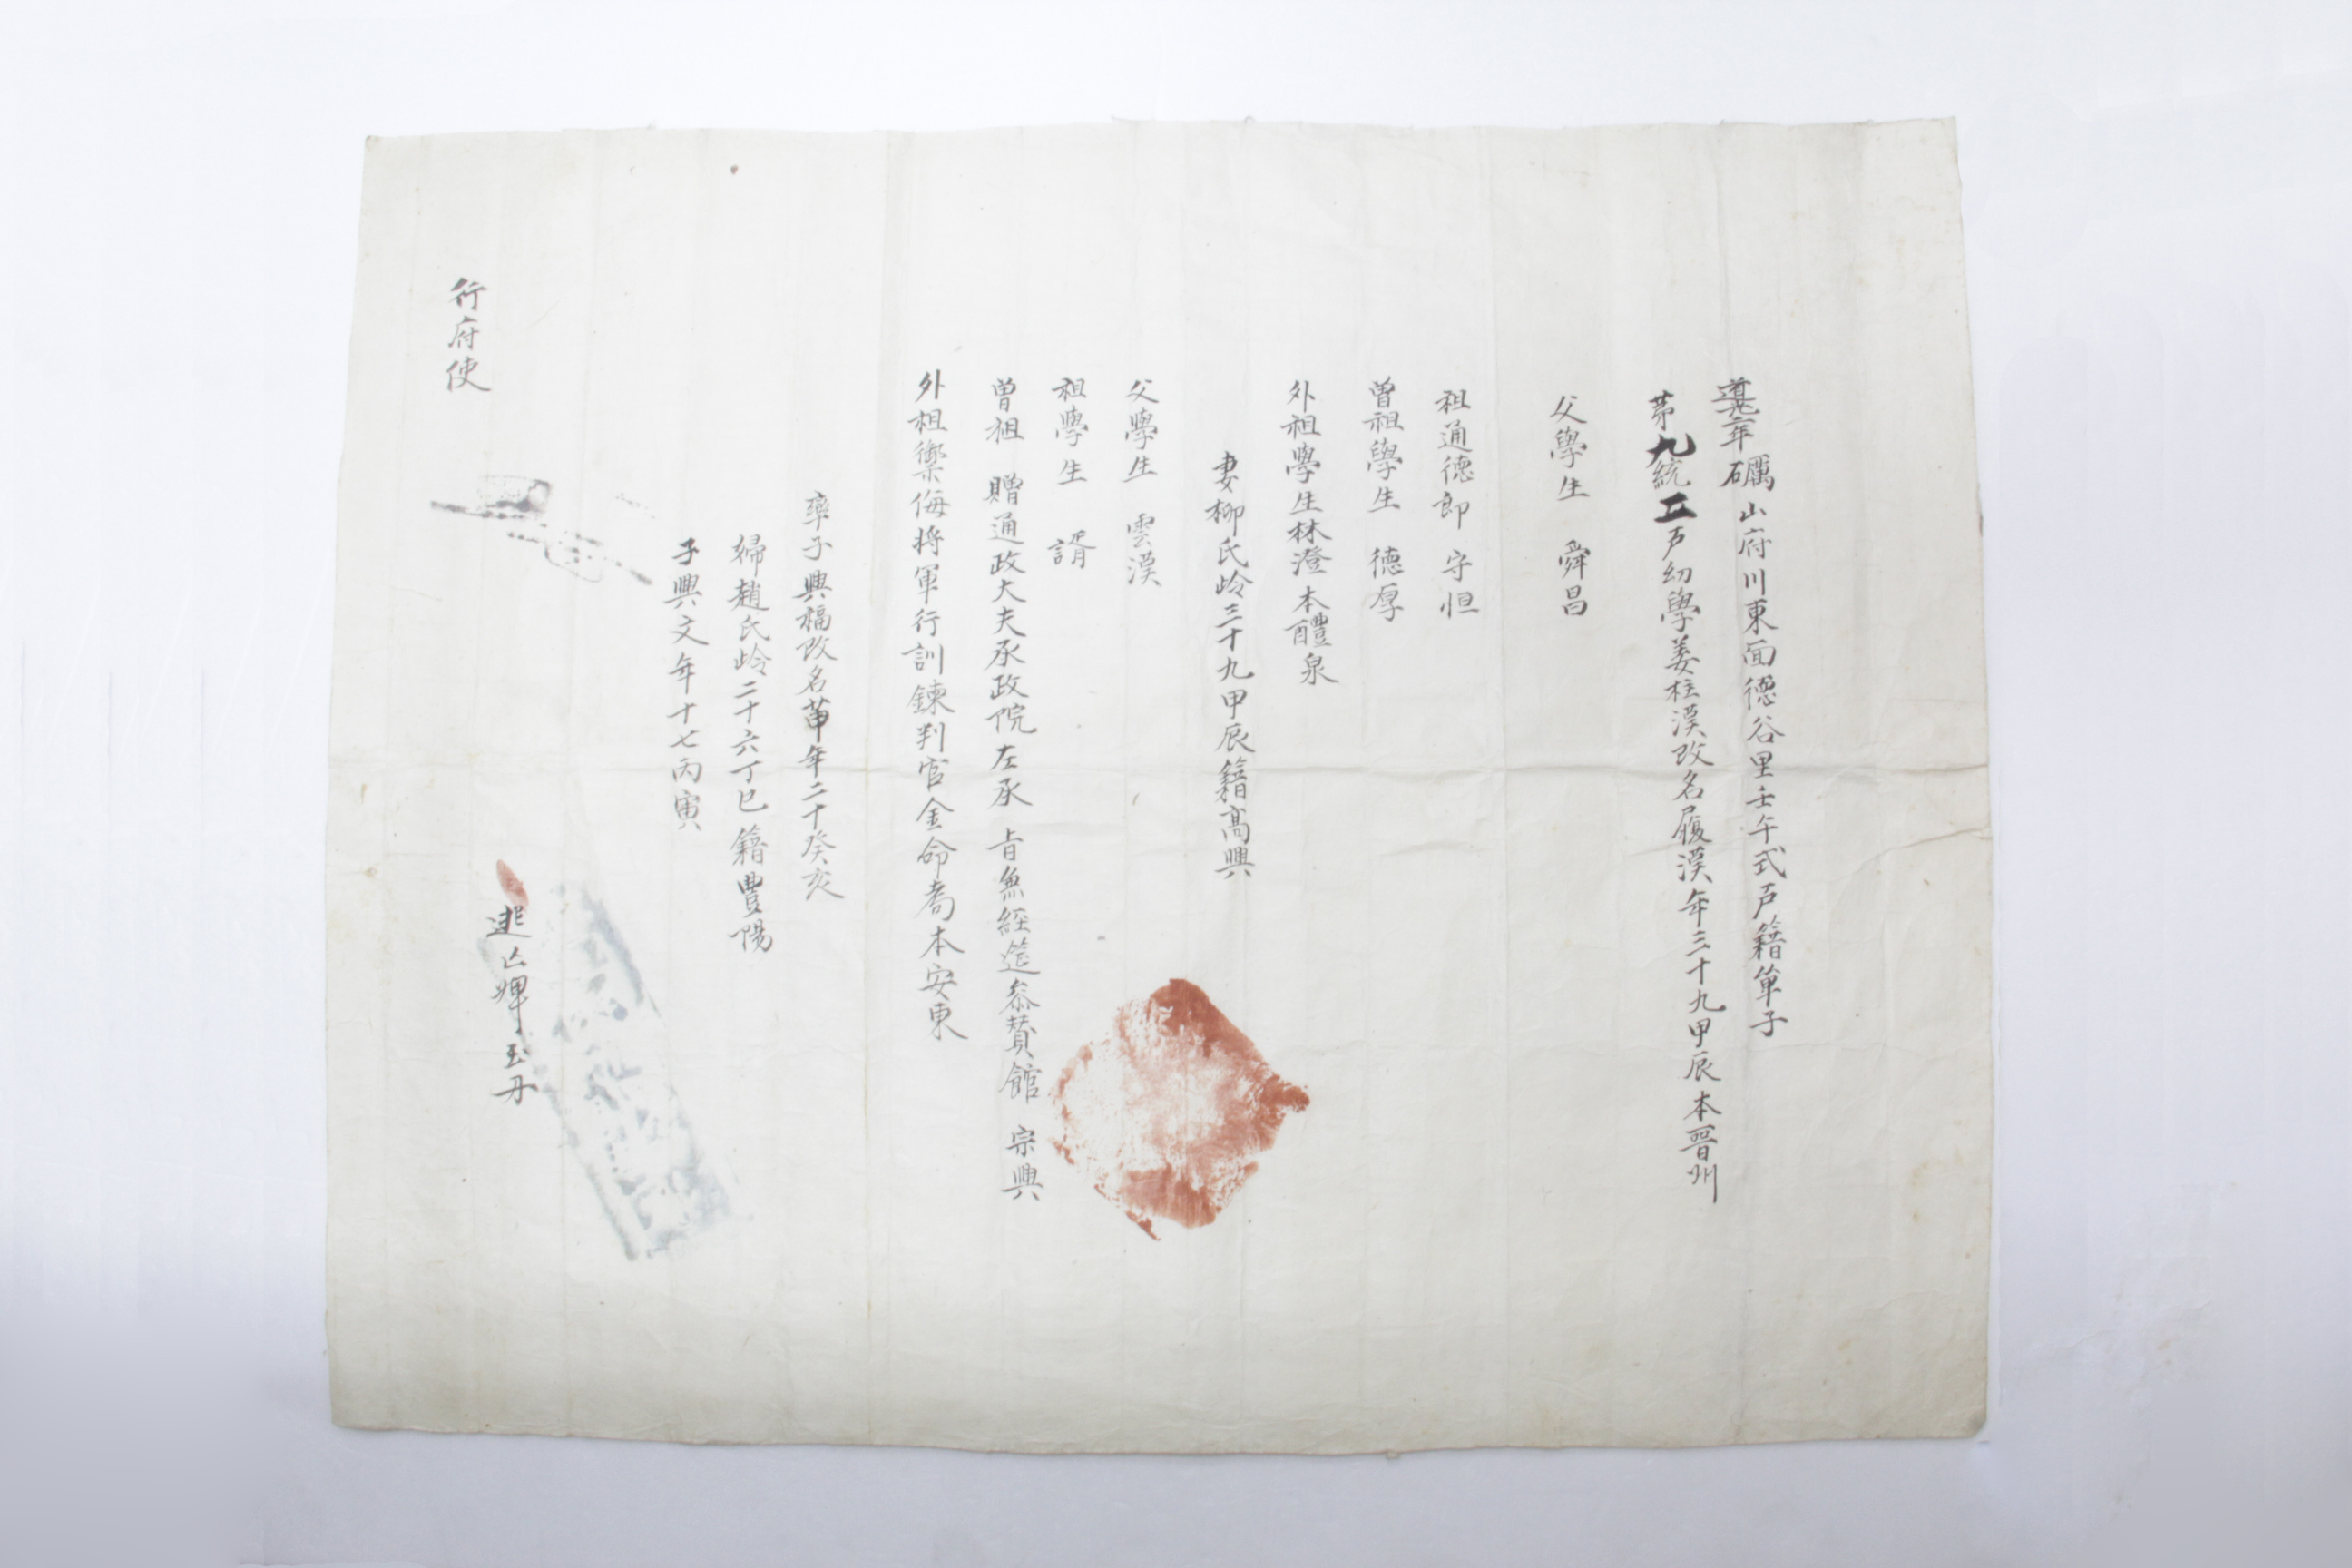 道光二年礪山府川東面德谷里壬午式戶籍單子
第九統五戶幼學姜柱漢改名履漢年三十九甲辰本晉州
父學生 舜昌
祖通德郎 守恒
曾祖學生 德厚
外祖學生林澄本醴泉
妻柳氏齡三十九甲辰籍高興
父學生 雲漢
祖學生 諝
曾祖 贈通政大夫承政院左承 旨兼經筵叅贊館 宗興
外祖禦侮將軍行訓鍊判官金命喬本安東
率子興福改名 年二十癸亥
婦趙氏齡二十六丁巳籍豐陽
子興文年十七丙寅
逃亡婢玉丹
行府使